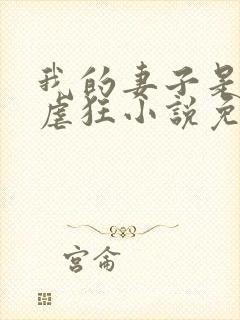 我的妻子是
虐狂小說免
宮侖